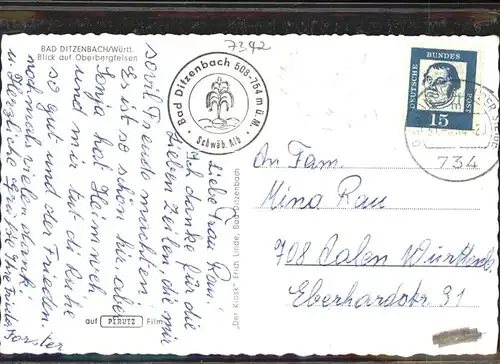 7392
BAD DITZENBACH/Württ.
Blick auf Oberbergfelsen
Bad Ditzenbach 508-754 m ü.M.
Schwäb. Alb
DEUTSCHE BUNDESPOST
15
734
Liebe Frau Rau!
Ich danke für die
lieben Zeilen, die mir
soviel Freude machten.
Es ist so schön hier, aber
Sonja hat Heimweh
und mir tut die Ruhe
so gut und der Frieden
nochmals vielen Dank
u. Herzliche Grüße
Forster
"Der Kiosk" Erich Linde, Bad Ditzenbach
auf PERUTZ Film
An Fam.
Mina Rau
708 Aalen Württbg
Eberhardstr 31